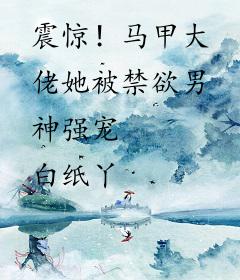 震惊！马甲大
佬她被禁欲男
神强宠
白纸丫